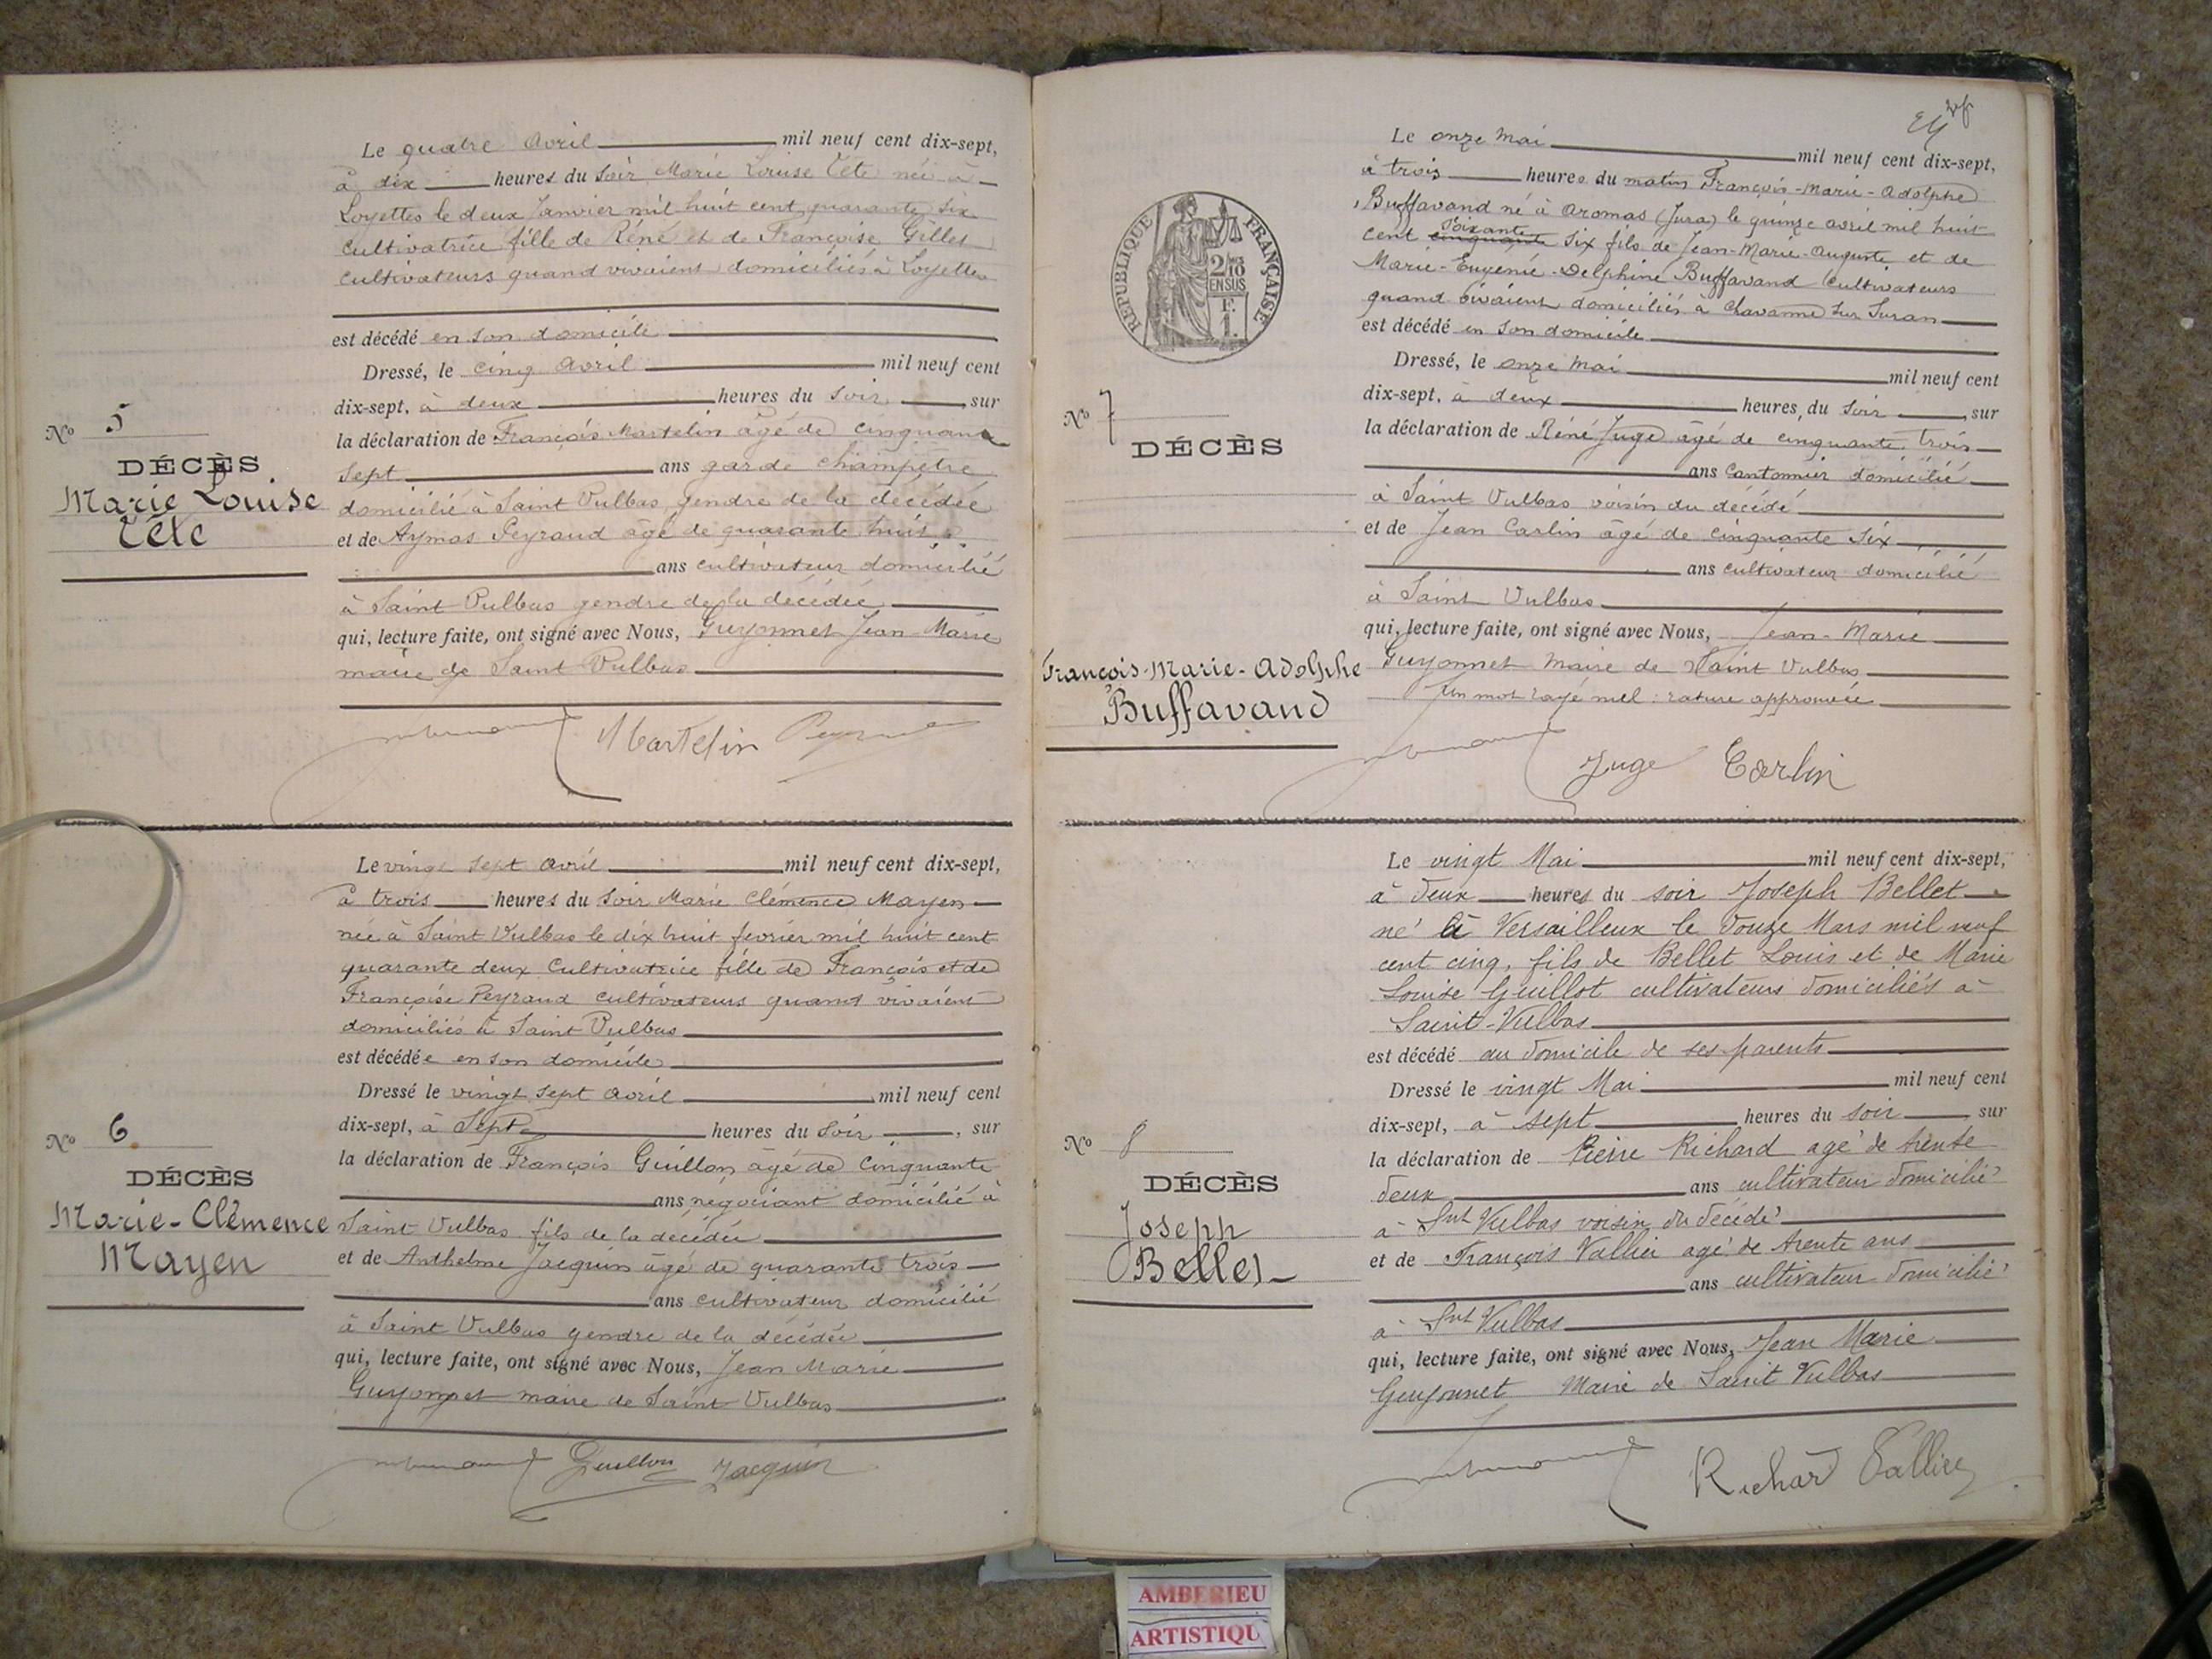 Le quatre Avril mil neuf cent dix-sept,
à dix heures du soir Marie Louise Tête née à
Loyettes le deux Janvier mil huit cent quarante six
cultivatrice fille de Réné et de Françoise Gillet
cultivateurs quand vivaient domiciliés à Loyettes
est décédé en son domicile
Dressé, le cinq Avril mil neuf cent
dix-sept, à deux heures du soir, sur
No 5
DÉCÈS
Marie Louise
Tête
la déclaration de François Martelin âgé de cinquante
sept ans garde champêtre
domicilié à Saint Vulbas gendre de la décédée
et de Aymas Peyraud âgé de quarante huit
ans cultivateur domicilié
à Saint Vulbas gendre de la décédée
qui, lecture faite, ont signé avec Nous, Guyonnet Jean Marie
maire de Saint Vulbas
Martelin Peyraud
Le vingt sept avril mil neuf cent dix-sept,
à trois heures du soir Marie Clémence Mayen
née à Saint Vulbas le dix huit fevrier mil huit cent
quarante deux Cultivatrice fille de François et de
Françoise Peyraud cultivateurs quand vivaient
domiciliés à Saint Vulbas
est décédée en son domicile
Dressé le vingt sept avril mil neuf cent
dix-sept, à Sept heures du soir, sur
No 6
DÉCÈS
Marie-Clémence
Mayen
la déclaration de François Guillon âgé de cinquante
ans négociant domicilié à
Saint Vulbas fils de la décédée
et de Anthelme Jacquin âgé de quarante trois
ans cultivateur domicilié
à Saint Vulbas gendre de la décédée
qui, lecture faite, ont signé avec Nous, Jean Marie
Guyonnet maire de Saint Vulbas
Guillon Jacquin
Le onze mai mil neuf cent dix-sept,
à trois heures du matin François-Marie-Adolphe
Buffavand né à Aromas (Jura) le quinze avril mil huit
cent cinquante soixante six fils de Jean-Marie-Auguste et de
Marie-Eugenie-Delphine Buffavand Cultivateurs
quand vivaient domiciliés à Chavanne sur Suran
est décédé en son domicile
Dressé, le onze mai mil neuf cent
dix-sept, à deux heures du soir, sur
RÉPUBLIQUE FRANÇAISE
2/10
EN SUS
F.
1.
No 7
DÉCÈS
François-Marie-Adolphe
Buffavand
la déclaration de Réné Juge âgé de cinquante trois
ans Cantonnier domicilié
à Saint Vulbas voisin du décédé
et de Jean Carlin âgé de cinquante six
ans cultivateur domicilié
à Saint Vulbas
qui, lecture faite, ont signé avec Nous, Jean-Marie
Guyonnet maire de Saint Vulbas
Un mot rayé nul : rature approuvée
Juge Carlin
Le vingt Mai mil neuf cent dix-sept,
à deux heures du soir Joseph Bellet
né à Versailleux le douze Mars mil neuf
cent cinq, fils de Bellet Louis et de Marie
Louise Guillot cultivateurs domiciliés à
Saint-Vulbas
est décédé au domicile de ses parents
Dressé le vingt Mai mil neuf cent
dix-sept, à sept heures du soir, sur
No 8
DÉCÈS
Joseph
Bellet
la déclaration de Pierre Richard agé de trente
deux ans cultivateur domicilié
à Snt Vulbas voisin du décédé
et de François Vallier agé de trente ans
ans cultivateur domicilié
à Snt Vulbas
qui, lecture faite, ont signé avec Nous, Jean Marie
Guyonnet Maire de Saint Vulbas
Richard Vallier
AMBERIEU
ARTISTIQU